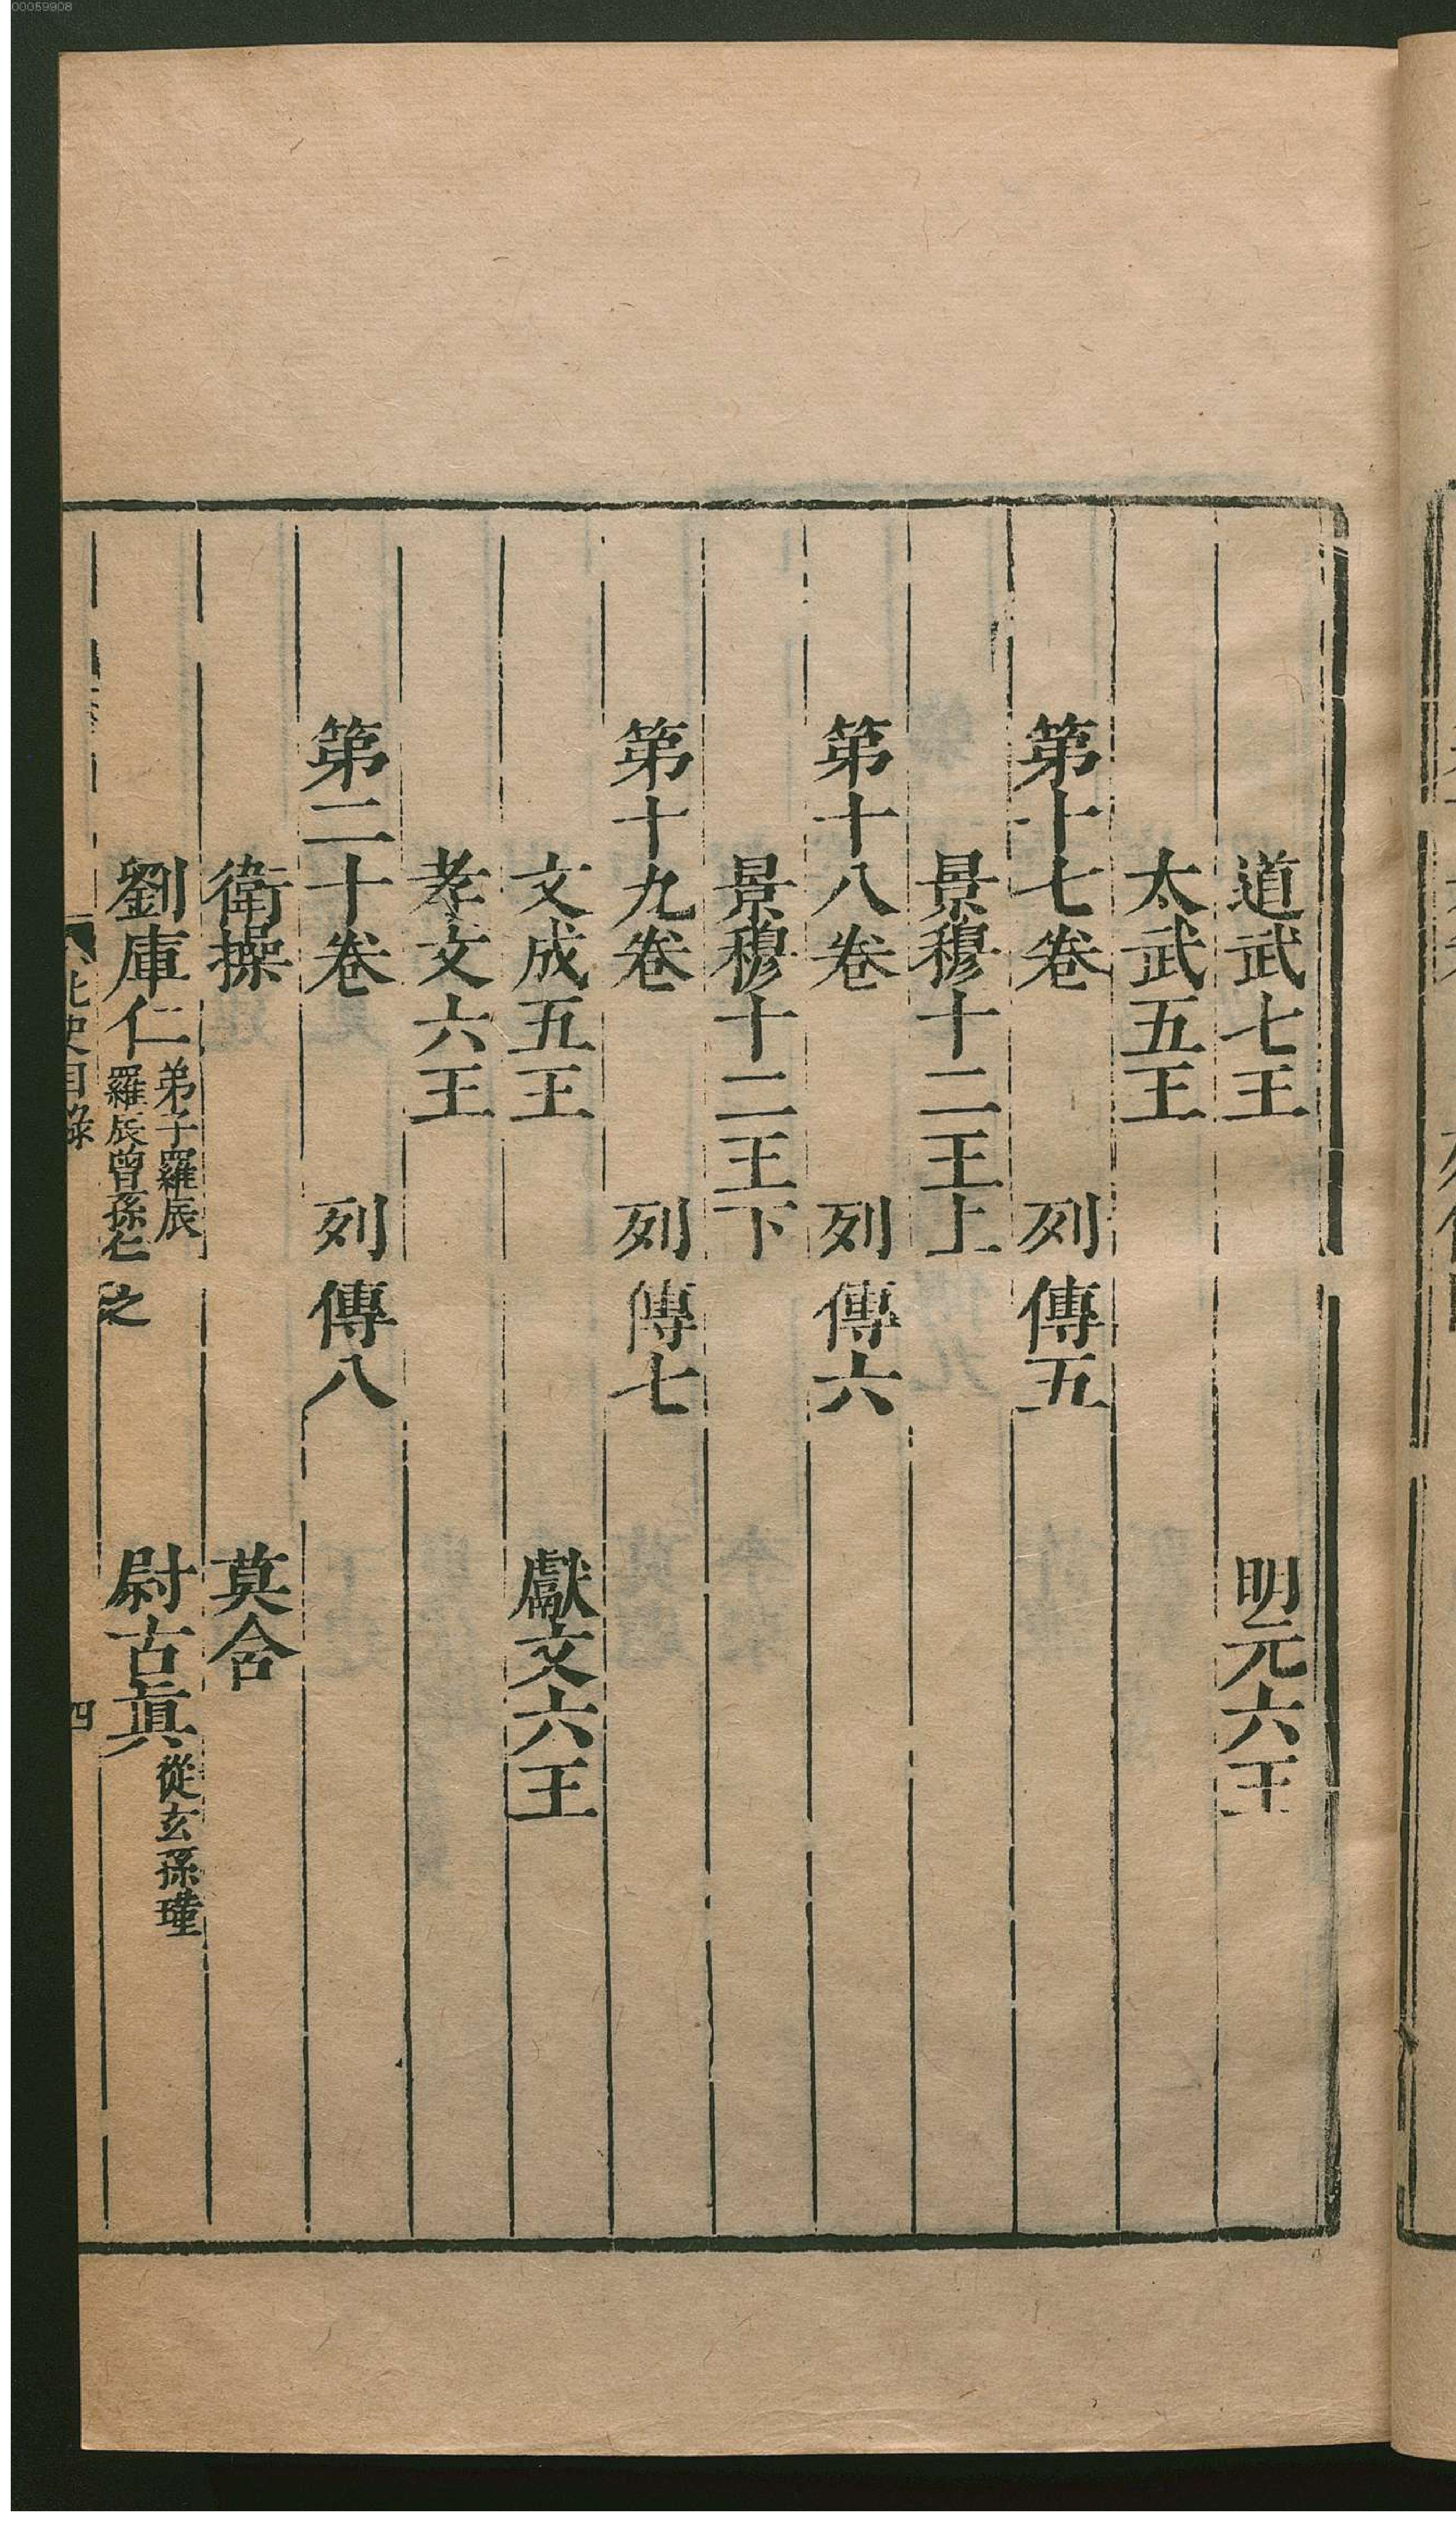 00059908
道武七王 明元六王
太武五王
第十七卷 列傳五
景穆十二王上
第十八卷 列傳六
景穆十二王下
第十九卷 列傳七
文成五王 獻文六王
孝文六王
第二十卷 列傳八
衛操 莫含
劉庫仁 弟子羅辰 羅辰曾孫仁之 尉古眞 從玄孫瑾
北史目錄 四